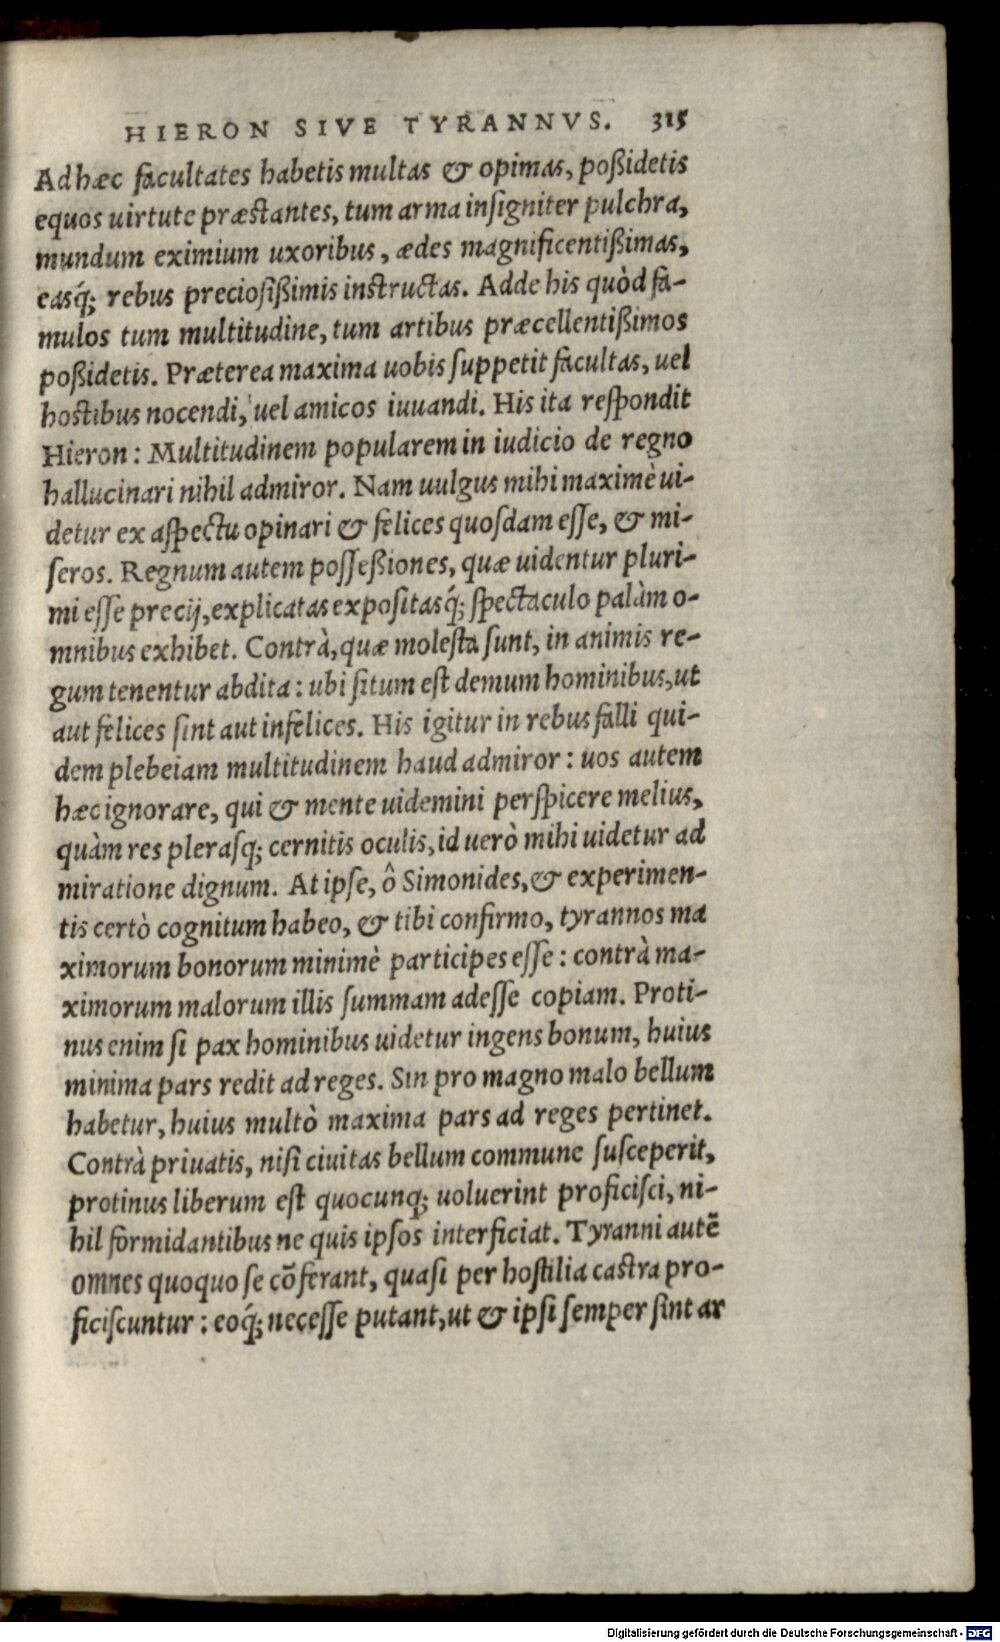 HIERON SIVE TYRANNVS. 315
Ad hæc facultates habetis multas & opimas, poßidetis
equos uirtute præstantes, tum arma insigniter pulchra,
mundum eximium uxoribus, ædes magnificentißimas,
easq́; rebus preciosißimis instructas. Adde his quòd fa-
mulos tum multitudine, tum artibus præcellentißimos
poßidetis. Præterea maxima uobis suppetit facultas, uel
hostibus nocendi, uel amicos iuuandi. His ita respondit
Hieron: Multitudinem popularem in iudicio de regno
hallucinari nihil admiror. Nam uulgus mihi maximè ui-
detur ex aspectu opinari & felices quosdam esse, & mi-
seros. Regnum autem posseßiones, quæ uidentur pluri-
mi esse precij, explicatas expositasq́; spectaculo palàm o-
mnibus exhibet. Contrà, quæ molesta sunt, in animis re-
gum tenentur abdita: ubi situm est demum hominibus, ut
aut felices sint aut infelices. His igitur in rebus falli qui-
dem plebeiam multitudinem haud admiror: uos autem
hæc ignorare, qui & mente uidemini perspicere melius,
quàm res plerasq; cernitis oculis, id uerò mihi uidetur ad
miratione dignum. At ipse, ô Simonides, & experimen-
tis certò cognitum habeo, & tibi confirmo, tyrannos ma
ximorum bonorum minimè participes esse: contrà ma-
ximorum malorum illis summam adesse copiam. Proti-
nus enim si pax hominibus uidetur ingens bonum, huius
minima pars redit ad reges. Sin pro magno malo bellum
habetur, huius multò maxima pars ad reges pertinet.
Contrà priuatis, nisi ciuitas bellum commune susceperit,
protinus liberum est quocunq; uoluerint proficisci, ni-
hil formidantibus ne quis ipsos interficiat. Tyranni autē
omnes quoquo se cōferant, quasi per hostilia castra pro-
ficiscuntur: eoq́; necesse putant, ut & ipsi semper sint ar
Digitalisierung gefördert durch die Deutsche Forschungsgemeinschaft - DFG